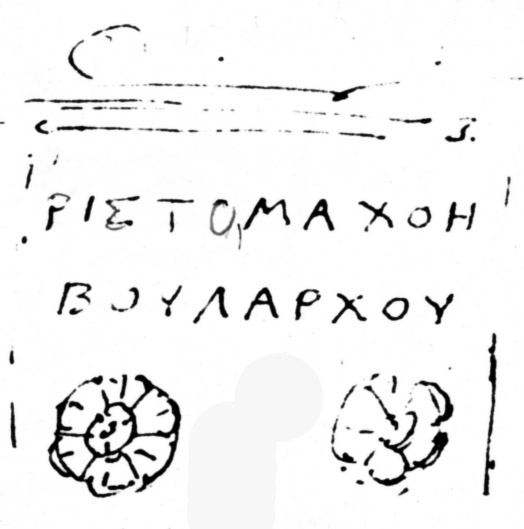 ΡΙΣΤΟΜΑΧΟΗ
ΒΟΥΛΑΡΧΟΥ